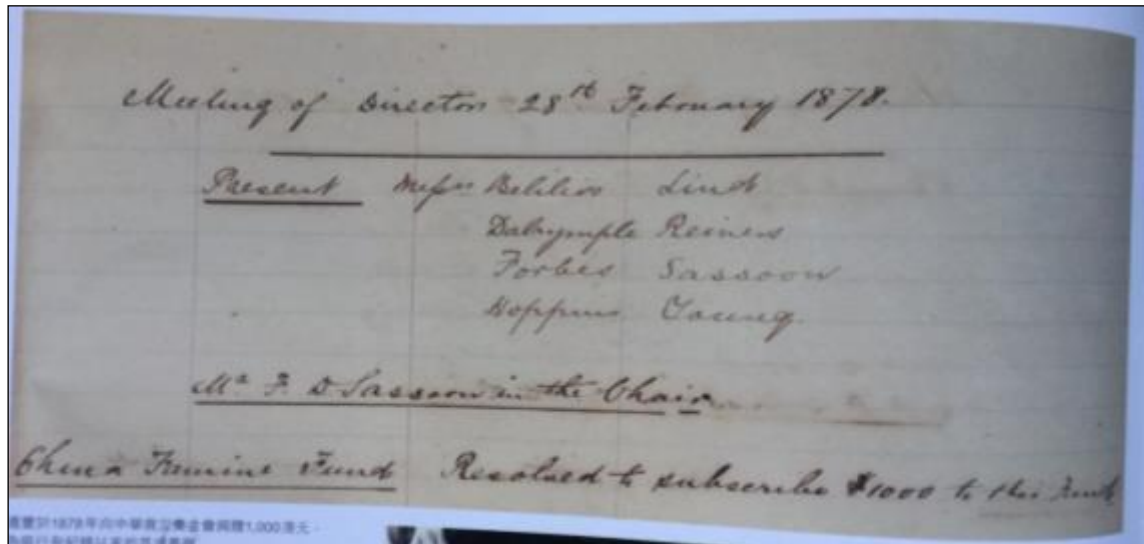 Meeting of Directors 28th February 1878.
Present Messrs Belilios Lind
Dalrymple Reiners
Forbes Sassoon
Hoppius Young.
Mr F. D Sassoon in the Chair
China Famine Fund Resolved to subscribe $1000 to this Fund
1878年向中華 1,000港元,